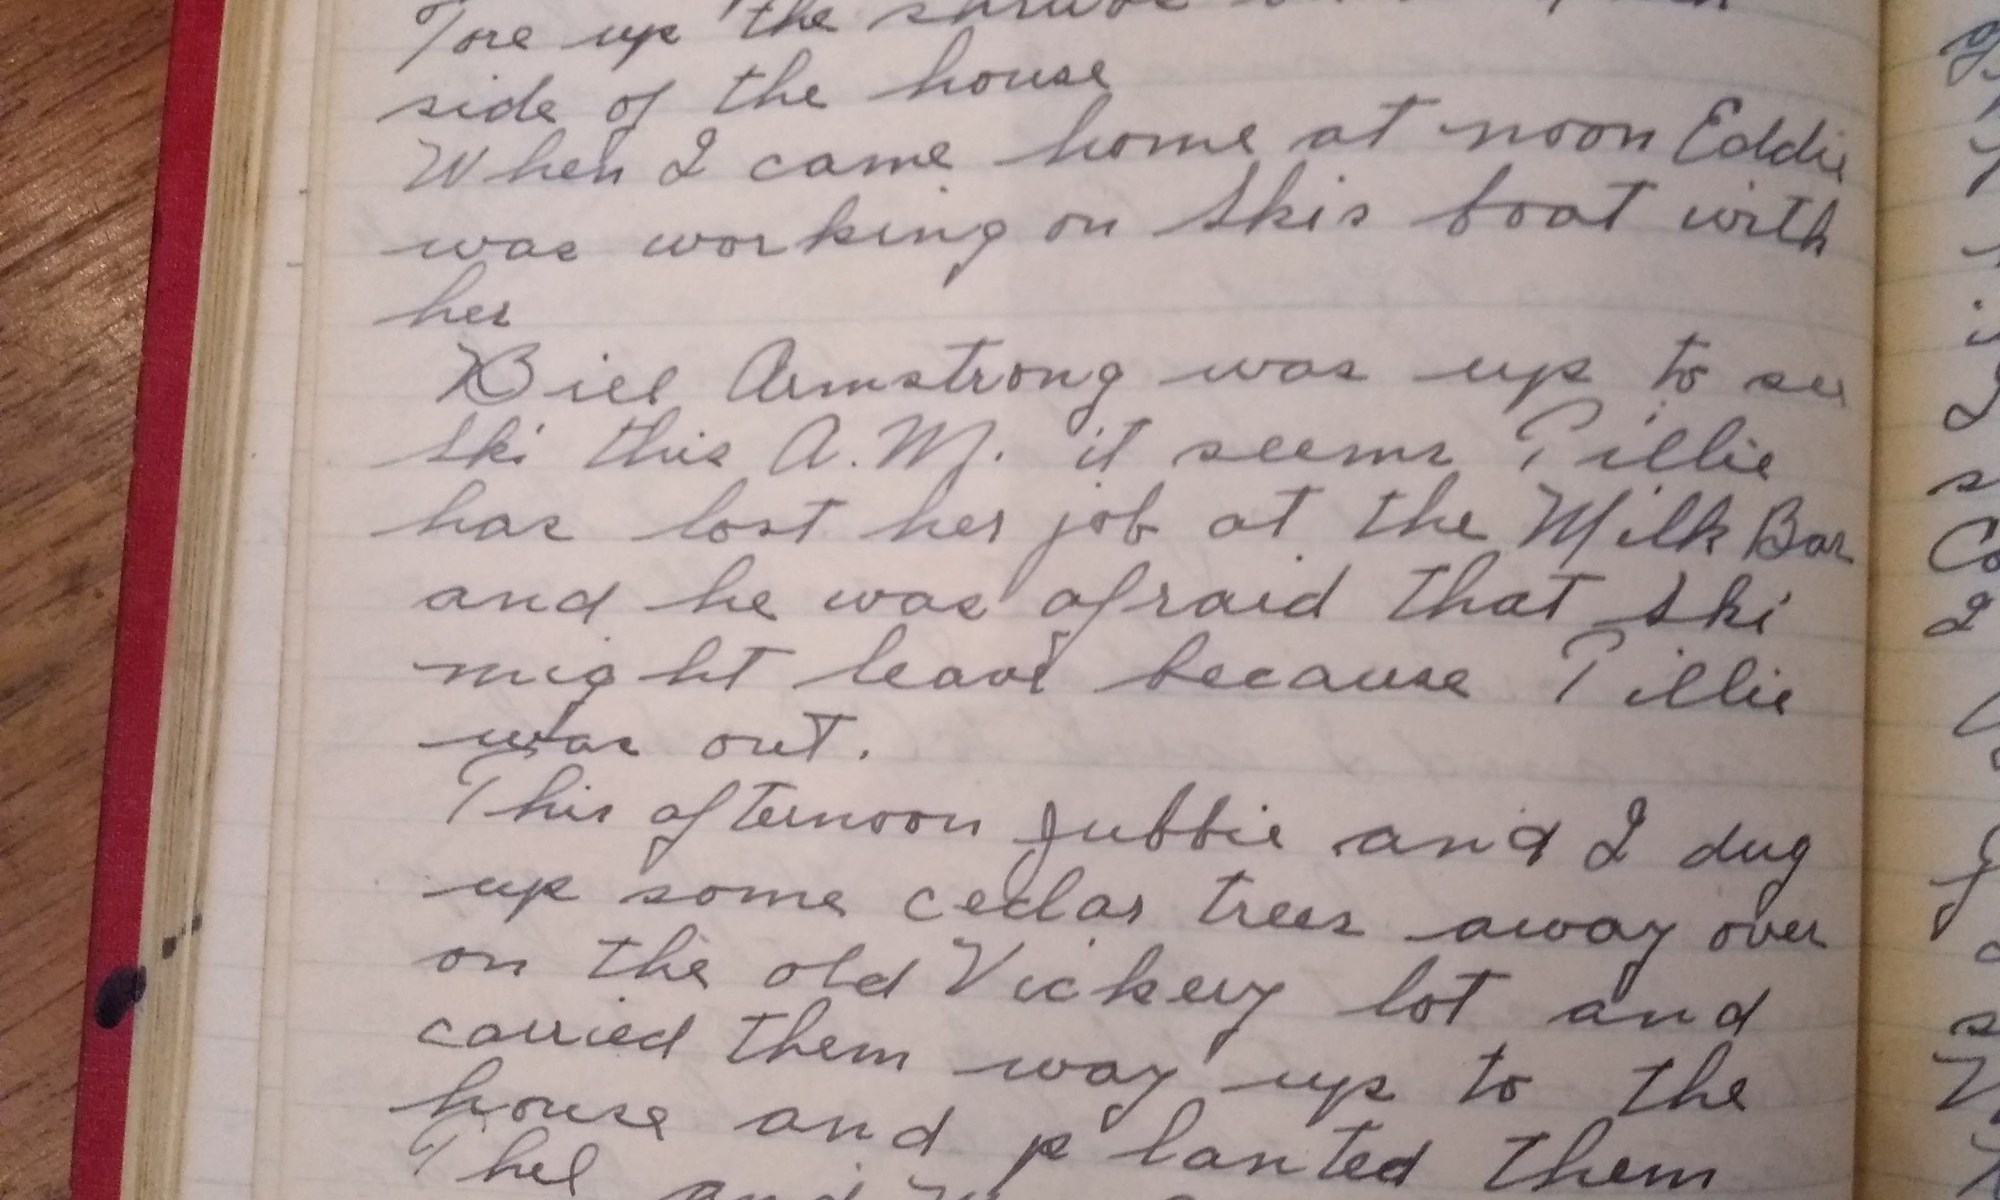 Tore up the shrubs
side of the house
When I came home at noon Eddie
was working on Skis boat with
her
Bill Armstrong was up to see
Ski this A.M. it seems Tillie
has lost her job at the Milk Bar
and he was afraid that Ski
might leave because Tillie
was out.
This afternoon Jubbie and I dug
up some cedar trees away over
on the old Vickery lot and
carried them way up to the
house and planted them
Thel and